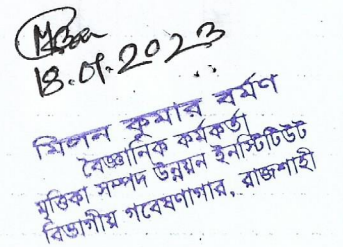 18.09.2023
মিলন কুমার বর্মণ
বৈজ্ঞানিক কর্মকর্তা
মৃত্তিকা সম্পদ উন্নয়ন ইনস্টিটিউট
বিভাগীয় গবেষণাগার, রাজশাহী